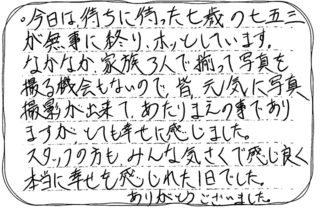 今日は、待ちに待った七歳の七五三
が無事に終り、ホッとしています。
なかなか家族3人で揃って写真を
撮る機会もないので、皆、元気に写真
撮影が出来て、あたりまえの事であり
ますが、とても幸せに感じました。
スタッフの方も、みんな気さくで感じ良く
本当に幸せを感じれた1日でした。
ありがとうございました。